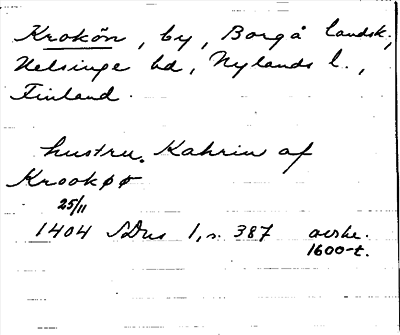 Krokön, by, Borgå landsk.,
Helsinge hd, Nylands l.,
Finland.
hustru Kahrin af
Krookøø
25/11
1404 SDns 1, s. 387 avskr.
1600-t.